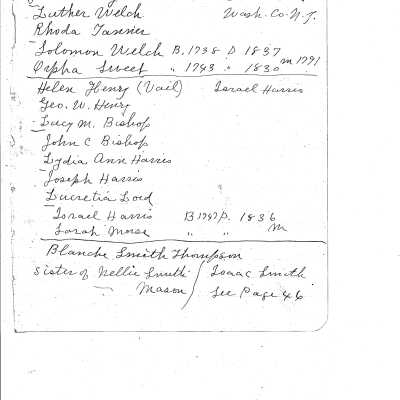 Luther Welch Wash. Co. N.Y.
Rhoda Tanner
Solomon Welch B. 1738 D 1837
Orpha Sweet " 1743 " 1830 m 1791
Helen Henry (Vail) Israel Harris
Geo. W. Henry
Lucy M. Bishop
John C Bishop
Lydia Ann Harris
Joseph Harris
Lucretia Lord
Israel Harris B 1747 D. 1836
Sarah Morse " " m
Blanche Smith Thompson
Sister of Nellie Smith Isaac Smith
Mason See Page 46